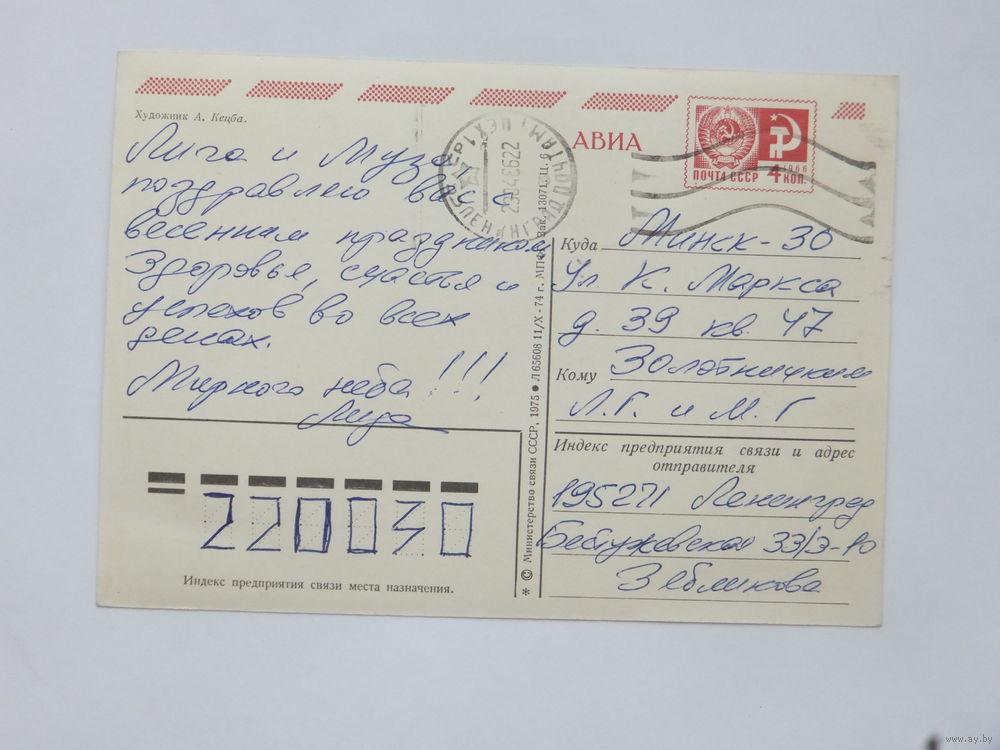 Художник А. Кецба.
Лига и Муза
поздравляю вас с
весенним праздником
Здоровья, счастья и
успехов во всех
делах.
Мирного неба!!!
Лида
АВИА
ПОЧТА СССР
1966
4 КОП.
Куда Минск-30
ул К. Маркса
д. 39 кв. 47
Кому Золотницким
Л.Г. и М.Г
Индекс предприятия связи и адрес
отправителя
195271 Ленинград
Бестужевская 33/Э-
Зябликова
220030
Индекс предприятия связи места назначения.
* © Министерство связи СССР, 1975 ● Л 65608 11/X - 74 г. МПФГ. Зак. 13071. Ц. 6
ЛЕНИНГРАД ПОЧТАМТ ЦЕХ 1
www.ay.by